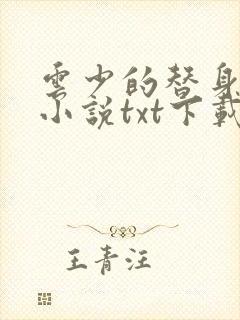 雲少的替身
小説txt下載
王青汪